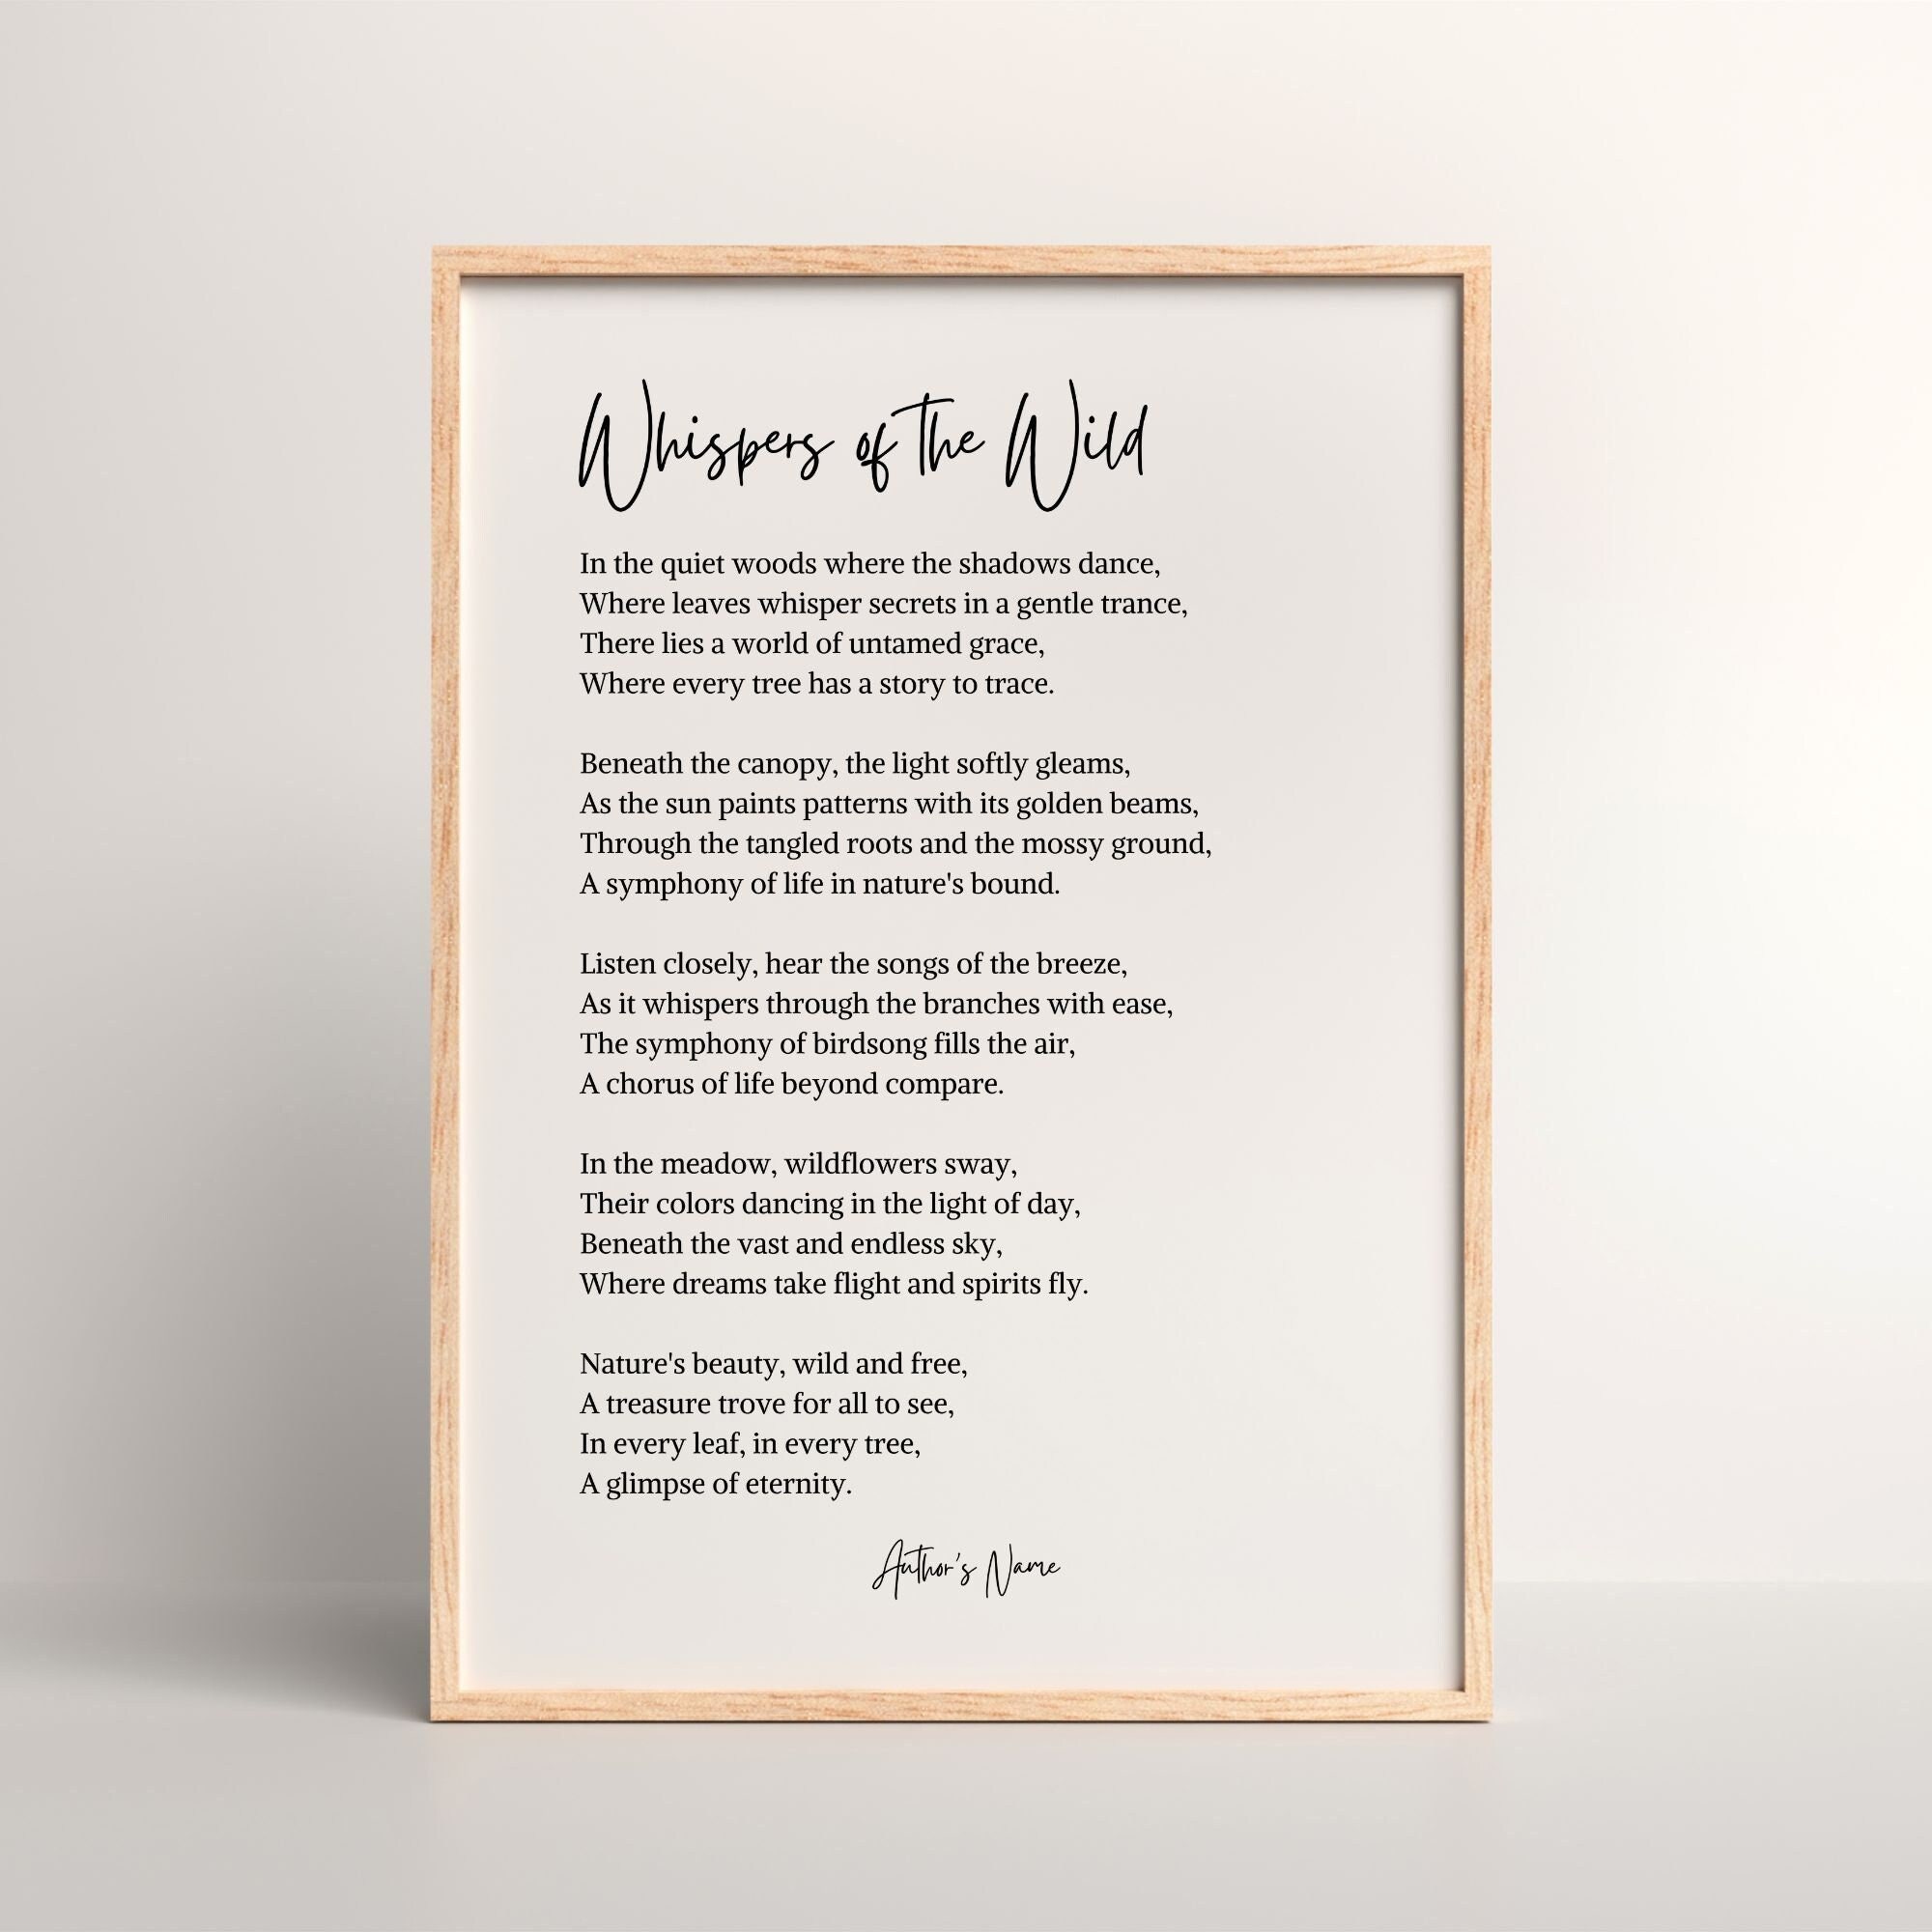 Whispers of the Wild
In the quiet woods where the shadows dance,
Where leaves whisper secrets in a gentle trance,
There lies a world of untamed grace,
Where every tree has a story to trace.
Beneath the canopy, the light softly gleams,
As the sun paints patterns with its golden beams,
Through the tangled roots and the mossy ground,
A symphony of life in nature's bound.
Listen closely, hear the songs of the breeze,
As it whispers through the branches with ease,
The symphony of birdsong fills the air,
A chorus of life beyond compare.
In the meadow, wildflowers sway,
Their colors dancing in the light of day,
Beneath the vast and endless sky,
Where dreams take flight and spirits fly.
Nature's beauty, wild and free,
A treasure trove for all to see,
In every leaf, in every tree,
A glimpse of eternity.
Author's Name